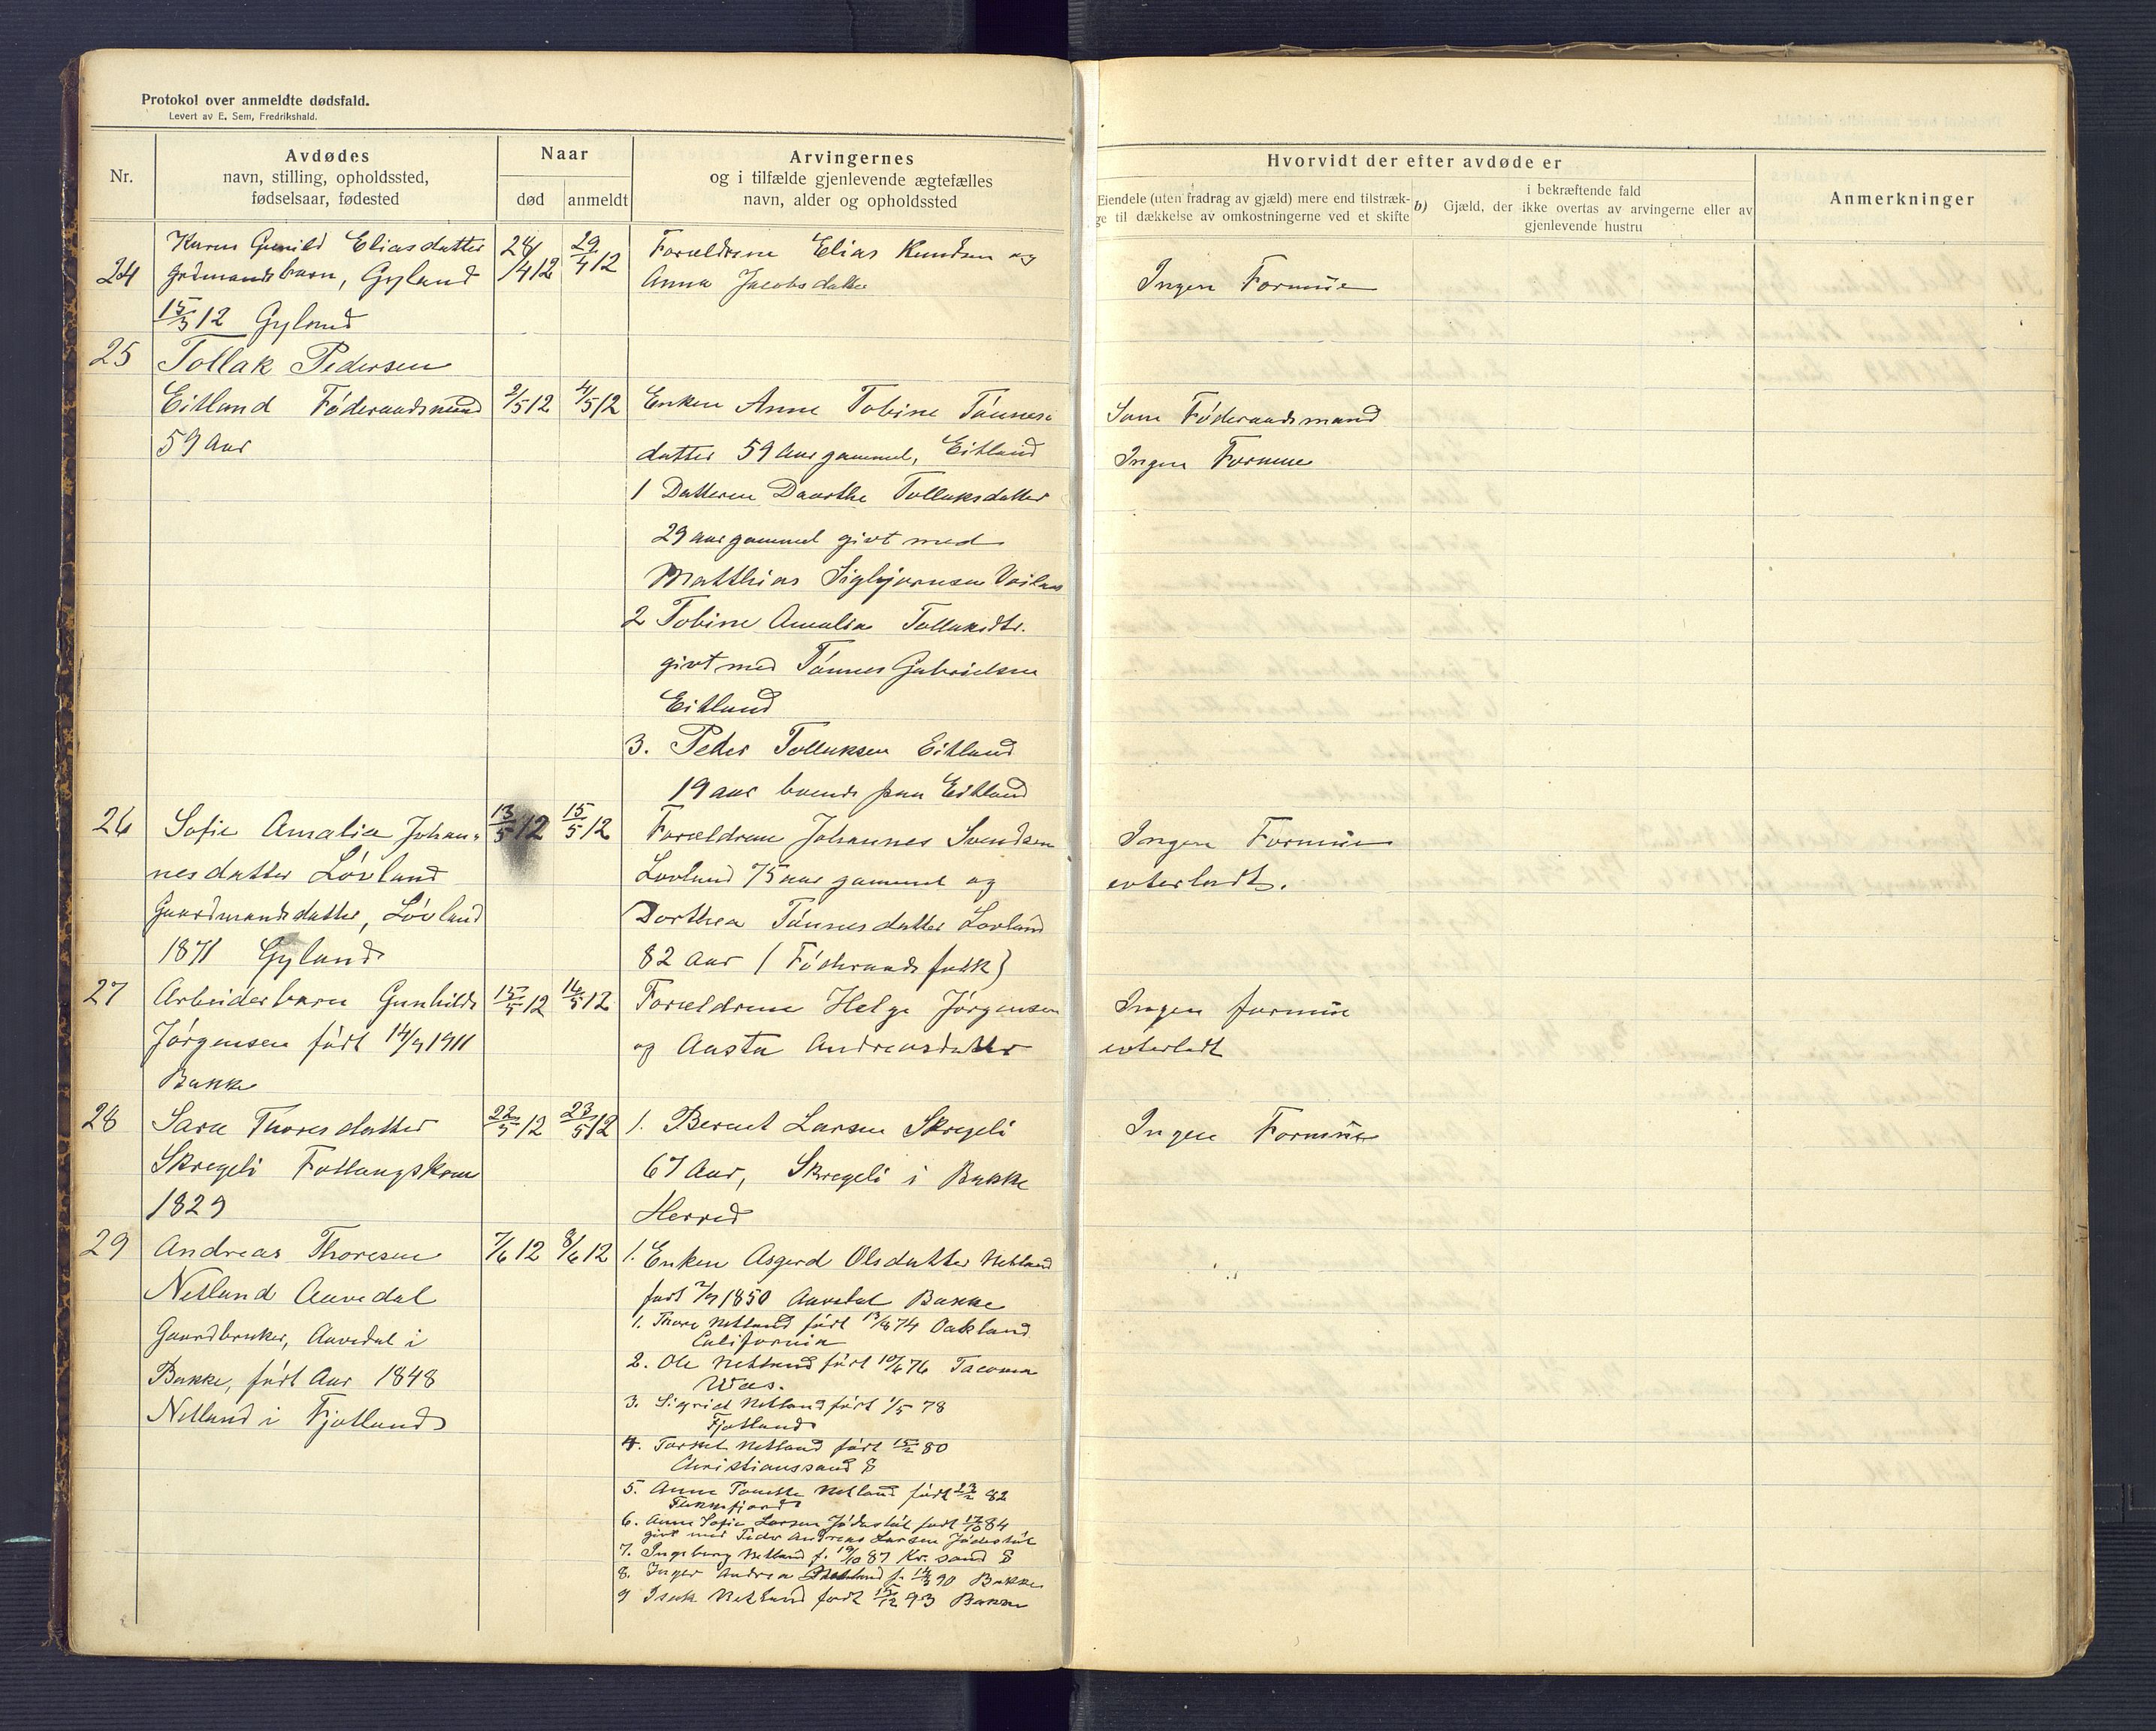 Protokol over anmeldte dødsfald.
Levert av E. Sem, Fredrikshald.
Nr.
Avdødes
navn, stilling, opholdssted,
fødselsaar, fødested
Naar
død
anmeldt
Arvingernes
og i tilfælde gjenlevende ægtefælles
navn, alder og opholdssted
Hvorvidt der efter avdøde er
Eiendele (uten fradrag av gjæld) mere end tilstræk-
ge til dækkelse av omkostningerne ved et skifte
b) Gjæld, der ikke overtas av arvingerne eller av
i bekræftende fald
gjenlevende hustru
Anmerkninger
24
Karen Gunild Eliasdatter
Grdmandsbarn, Gyland
15/3 12 Gyland
28/4 12
29/4 12
Forældrene Elias Knudsen og
Anna Jacobsdatter
Ingen Formue
25
Tollak Pedersen
Eitland Føderaadsmand
59 Aar
2/5 12
4/5 12
Enken Anne Tobine Tønnes-
datter 59 Aar gammel, Eitland
1 Datteren Daarthe Tollaksdatter
29 aar gammel givt med
Matthias Sigbjørnsen
2 Tobine Amalia Tollaksdtr.
givt med Tønnes Gabrielsen
Eitland
3. Peder Tollaksen Eitland
19 aar boende paa Eitland
Som Føderaadsmand
Ingen Formue
26
Sofie Amalia Johan-
nesdatter Løvland
Gaardmandsdatter, Løvland
1871 Gyland
13/5 12
15/5 12
Forældrene Johannes Svendsen
Lovland 75 aar gammel og
Dorthea Tønnesdatter Lovland
82 Aar (Føderaadsfolk)
Ingen Formue
efterladt.
27
Arbeiderbarn Gunhild
Jørgensen født 14/9 1911
Bakke
15/5 12
16/5 12
Forældrene Helge Jørgensen
og Aasta Andreasdatter
Ingen formue
efterladt
28
Sara Thoresdatter
Skregeli Fattangskone
1829
22/5 12
23/5 12
1. Bernt Larsen Skregeli
67 Aar, Skregeli i Bakke
Herred
Ingen Formue
29
Andreas Thoresen
Netland Aavedal
Gaardbruker, Aavedal i
Bakke, født Aar 1848
Netland i Fjotland
7/6 12
8/6 12
1. Enken Asgerd Olsdatter Netland
født 2/9 1850 Aavedal Bakke
1. Thore Netland født 74 Oakland
California
2. Ole Netland født 10/6 76 Tacoma
Was.
3. Sigrid Netland født 1/5 78
Fjotland
4. Tarkel Netland født 15/2 80
Christianssand S
5. Anne Tonette Netland født 23/2 82
Flekkefjord
6. Anne Sofie Larsen Jødestøl født 17/10 84
givt med Peder Andreas Larsen Jødestøl
7. Ingeborg Netland f. 19/10 87 Kr. sand S
8. Inger Andrea Netland f. 14/3 90 Bakke
9 Isak Netland født 15/12 93 Bakke